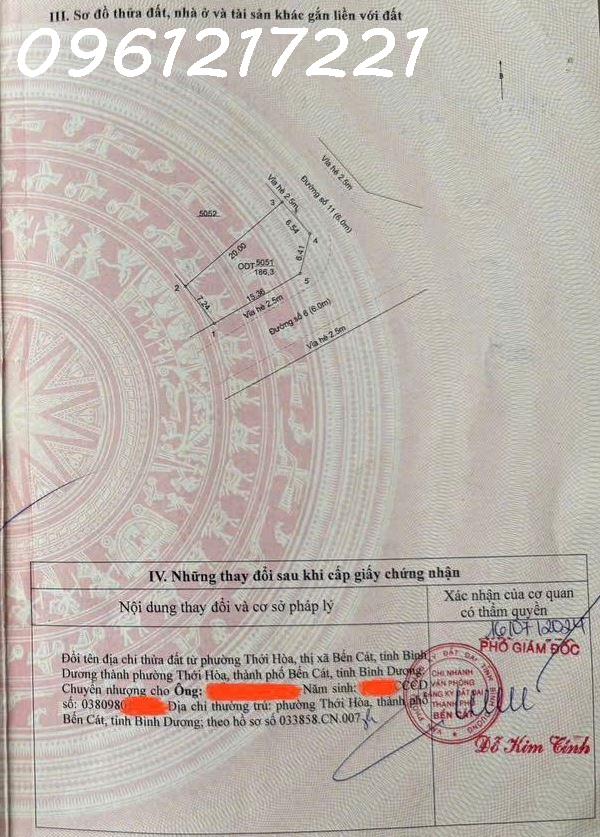 III. Sơ đồ thửa đất, nhà ở và tài sản khác gắn liền với đất
0961217221
B
Vỉa hè 2.5m
Đường số 11 (6.0m)
Vỉa hè 2.5m
3
5052
6.54
4
20.00
6.41
ODT 5051
186,3
5
2
7.24
15.36
Vỉa hè 2.5m
1
Đường số 6 (6.0m)
Vỉa hè 2.5m
IV. Những thay đổi sau khi cấp giấy chứng nhận
Nội dung thay đổi và cơ sở pháp lý
Xác nhận của cơ quan
có thẩm quyền
16/07/2024
PHÓ GIÁM ĐỐC
Đổi tên địa chỉ thửa đất từ phường Thới Hòa, thị xã Bến Cát, tỉnh Bình
Dương thành phường Thới Hòa, thành phố Bến Cát, tỉnh Bình Dương;
Chuyển nhượng cho Ông: Năm sinh: CCCD
số: 038098 Địa chỉ thường trú: phường Thới Hòa, thành phố
Bến Cát, tỉnh Bình Dương; theo hồ sơ số 033858.CN.007
CHI NHÁNH
VĂN PHÒNG
ĐĂNG KÝ ĐẤT ĐAI
THÀNH PHỐ
BẾN CÁT
Đỗ Kim Tính